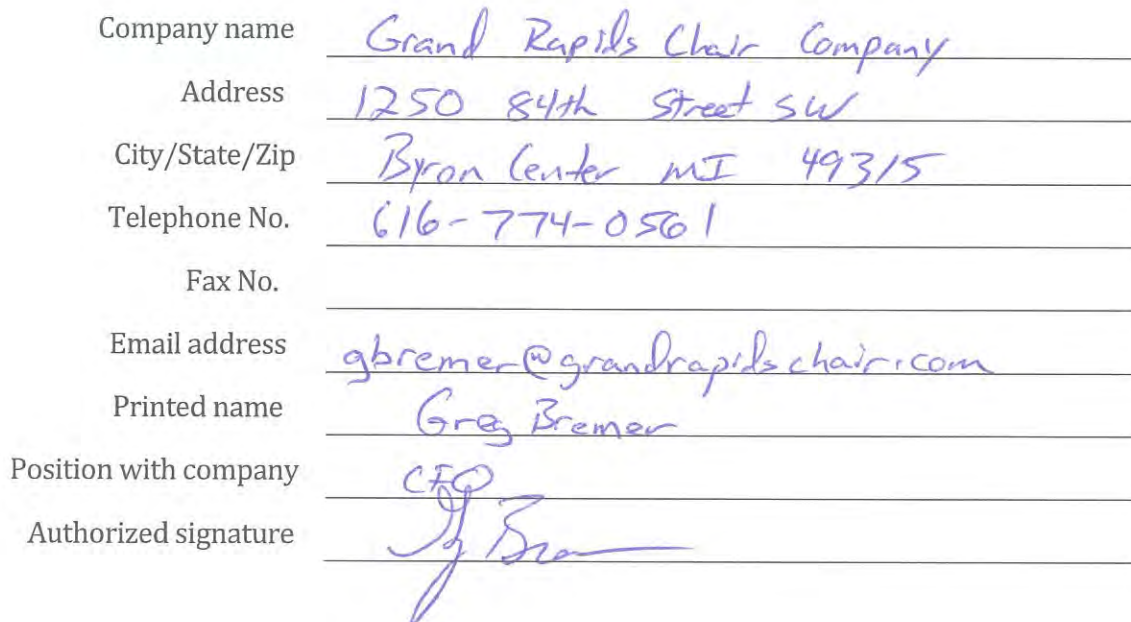 Company name Grand Rapids Chair Company
Address 1250 84th Street SW
City/State/Zip Byron Center MI 49315
Telephone No. 616-774-0561
Fax No.
Email address gbremer@grandrapidschair.com
Printed name Greg Bremer
Position with company CFO
Authorized signature